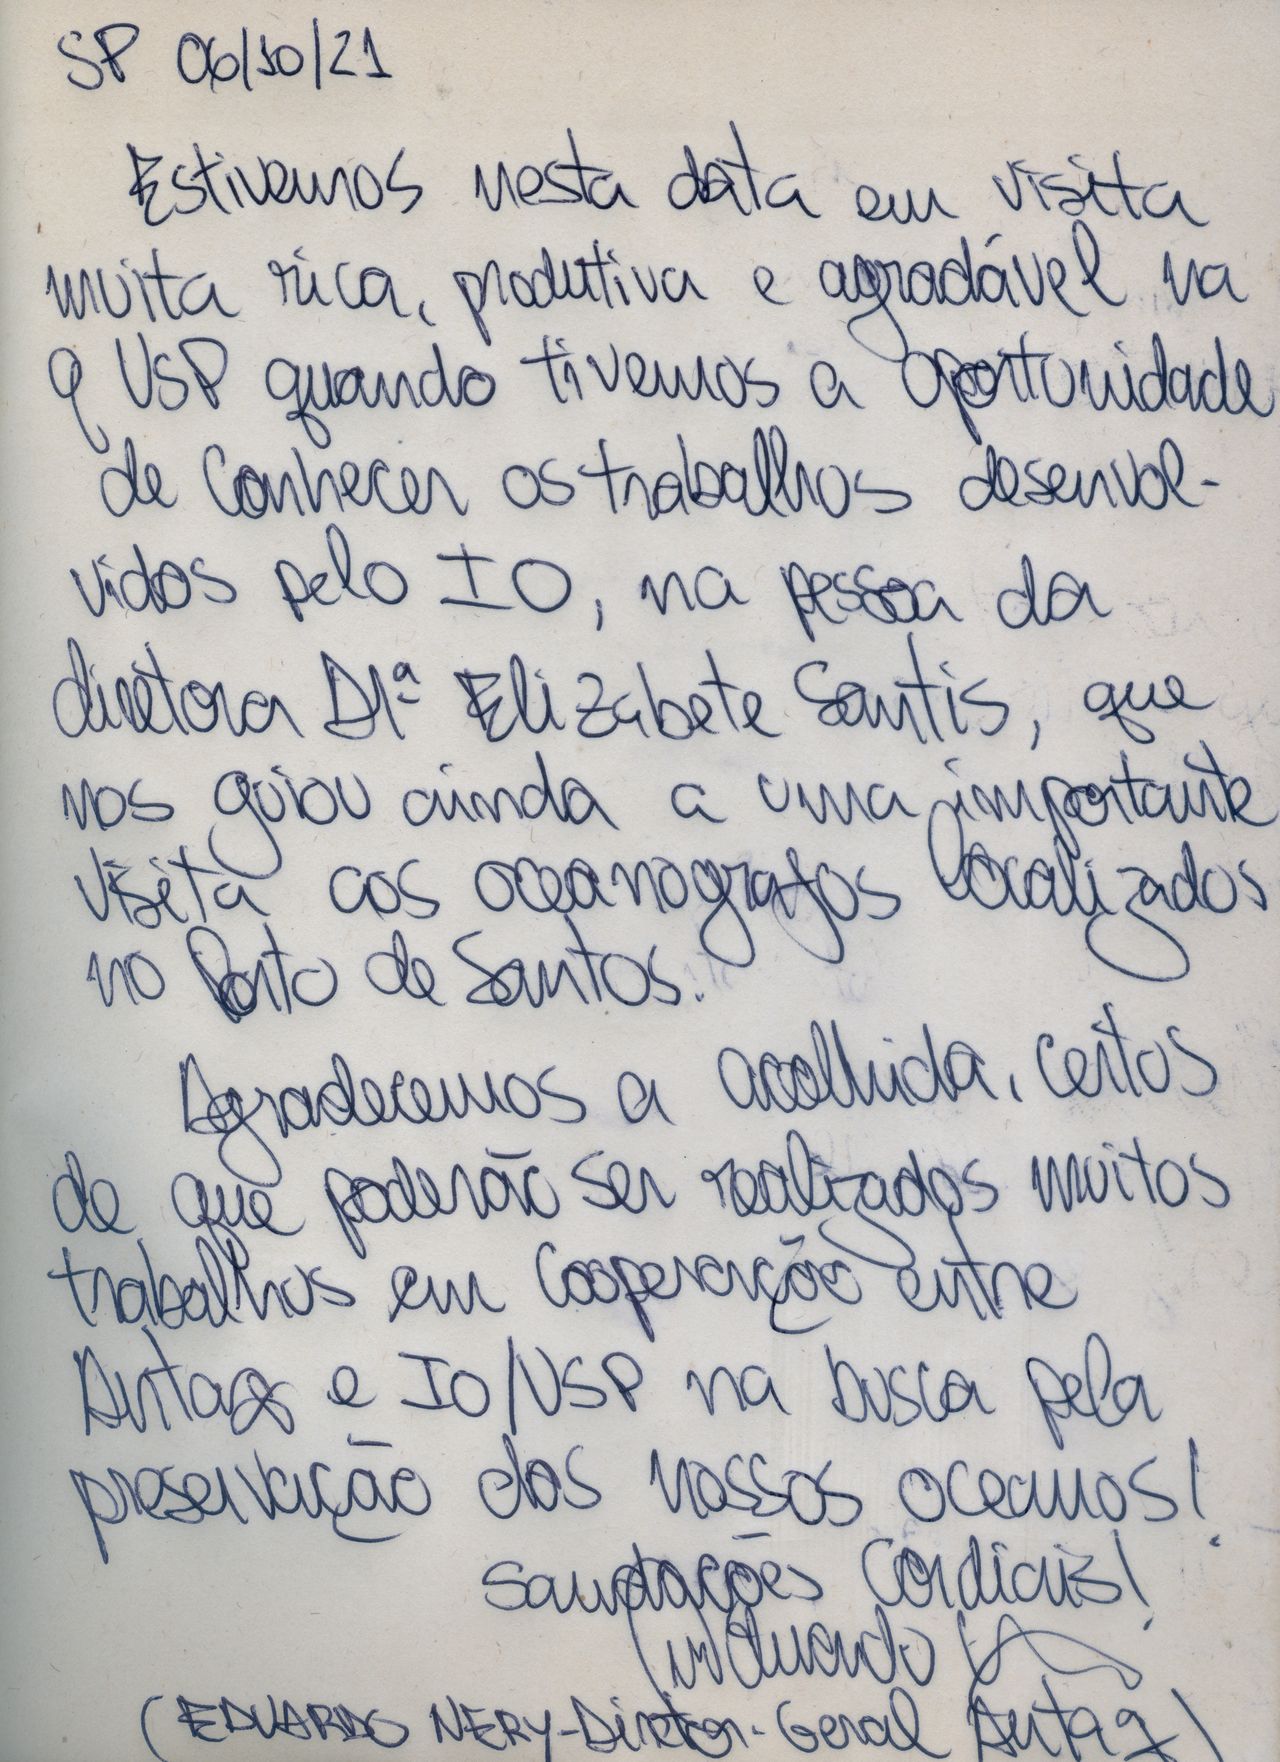 SP 06/10/21
Estivemos nesta data em visita
muita rica, produtiva e agradável na
q USP quando tivemos a oportunidade
de conhecer os trabalhos desenvol-
vidos pelo IO, na pessoa da
diretora Drª Elizabete Santis, que
nos guiou ainda a uma importante
visita aos oceanografos localizados
no Porto de Santos.
Agradecemos a acolhida, certos
de que poderão ser realizados muitos
trabalhos em cooperação entre
Antaq e IO/USP na busca pela
preservação dos nossos oceanos!
Saudações Cordiais!
(EDUARDO NERY-Diretor-Geral Antaq)